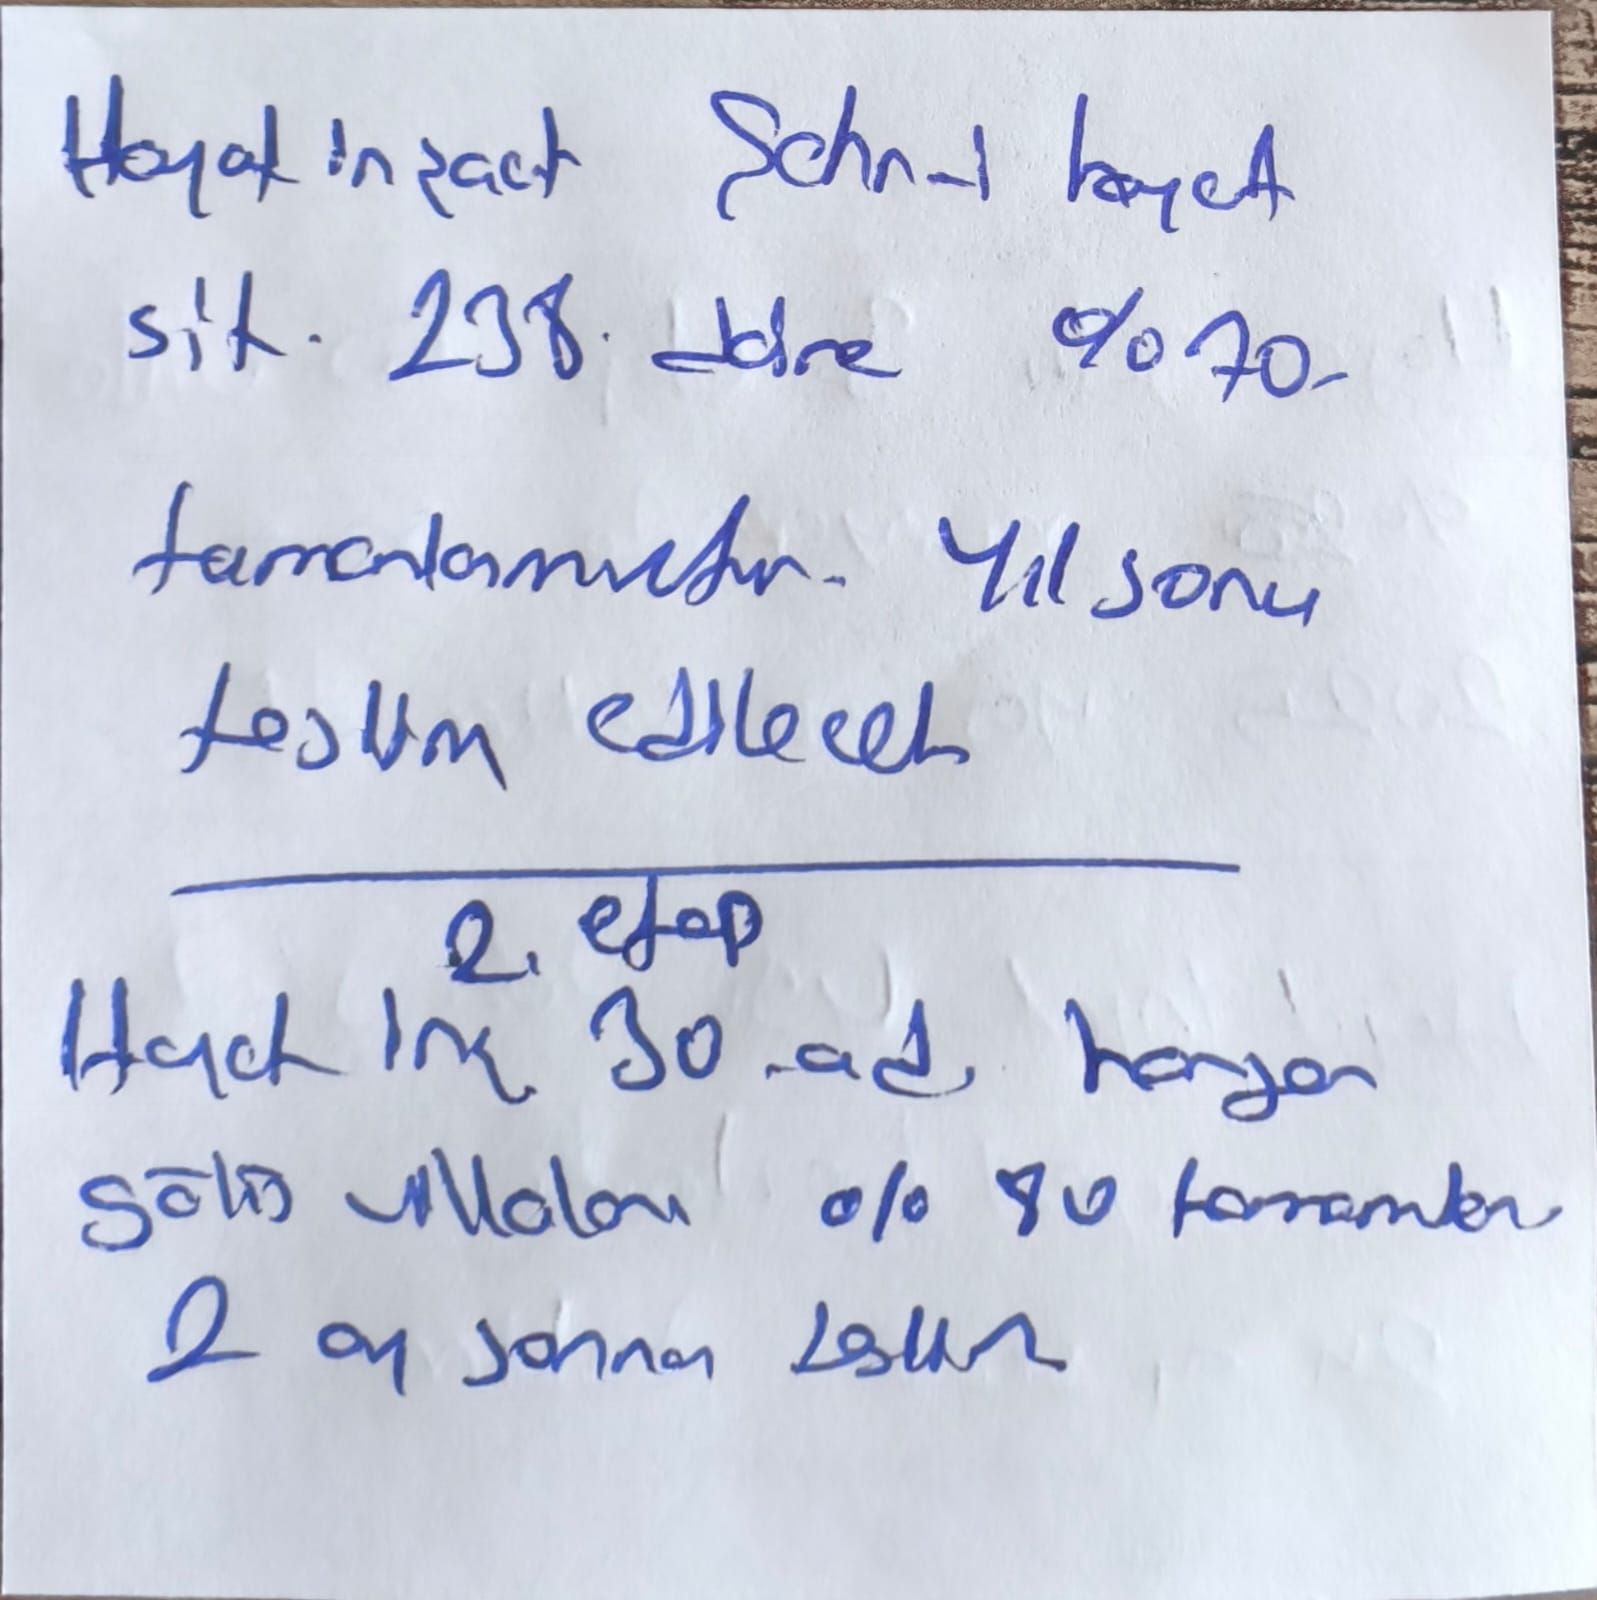 Hayat inşaat Şehr-i hayat
sit. 238. daire %70
tamamlanmıştır. Yıl sonu
teslim edilecek
2. etap
Hayat inş 30 ad.
gölü villaları %80 tamamlan
2 ay sonra teslim